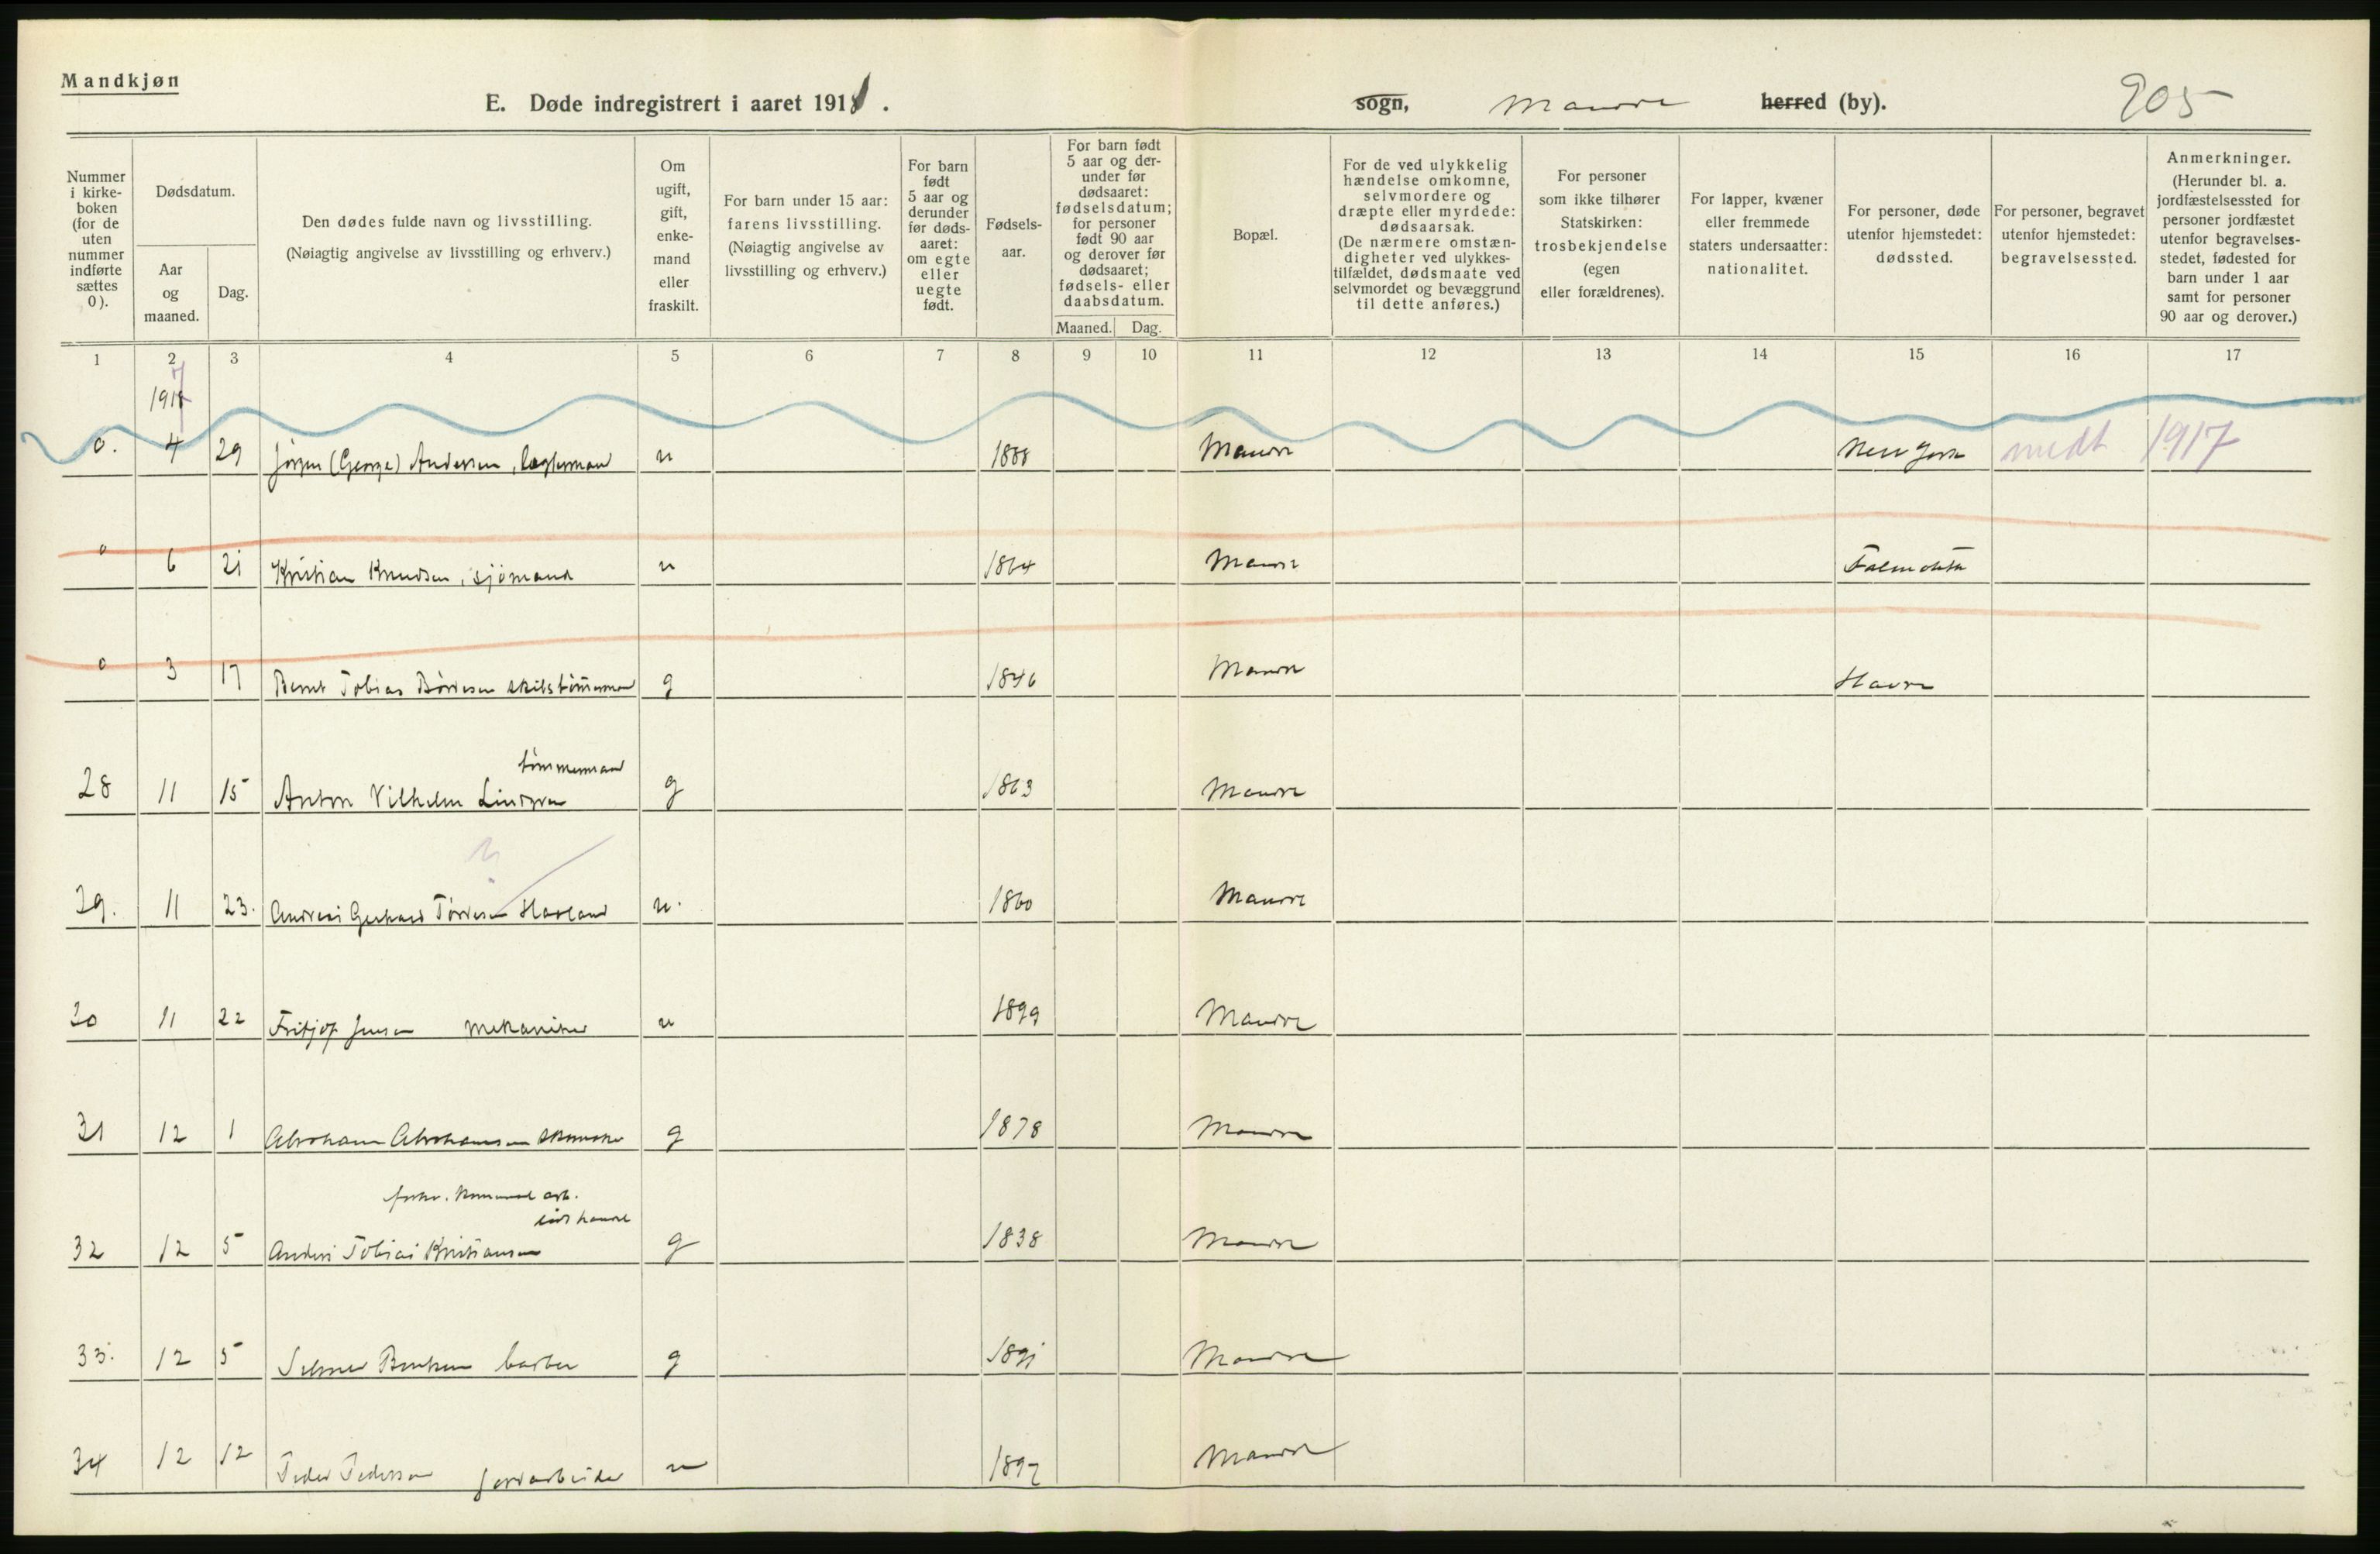 Mandkjøn
E. Døde indregistrert i aaret 1918. sogn, Mandal herred (by). 205
Nummer i kirke-boken (for de uten nummer indførte sættes 0).
Dødsdatum.
Aar og maaned.
Dag.
Den dødes fulde navn og livsstilling.
(Nøiagtig angivelse av livsstilling og erhverv.)
Om ugift, gift, enke-mand eller fraskilt.
For barn under 15 aar: farens livsstilling.
(Nøiagtig angivelse av livsstilling og erhverv.)
For barn født 5 aar og derunder før døds-aaret: om egte eller uegte født.
Fødsels-aar.
For barn født 5 aar og der-under før dødsaaret: fødselsdatum; for personer født 90 aar og derover før dødsaaret; fødsels- eller daabsdatum.
Maaned. Dag.
Bopæl.
For de ved ulykkelig hændelse omkomne, selvmordere og dræpte eller myrdede: dødsaarsak.
(De nærmere omstæn-digheter ved ulykkes-tilfældet, dødsmaate ved selvmordet og bevæggrund til dette anføres.)
For personer som ikke tilhører Statskirken: trosbekjendelse (egen eller forældrenes).
For lapper, kvæner eller fremmede staters undersaatter: nationalitet.
For personer, døde utenfor hjemstedet: dødssted.
For personer, begravet utenfor hjemstedet: begravelsessted.
Anmerkninger.
(Herunder bl. a. jordfæstelsessted for personer jordfæstet utenfor begravelses-stedet, fødested for barn under 1 aar samt for personer 90 aar og derover.)
1 2 3 4 5 6 7 8 9 10 11 12 13 14 15 16 17
1917
0. 4 29 Jørgen (George) Andersen, u 1888 Mandal New York medt 1917
0 6 21 Kristian Knudsen, sjømand u 1864 Mandal Falmouth
0 3 17 Bernt Tobias skibstømmermand g 1846 Mandal Havre
tømmermand
28 11 15 Anton Vilhelm g 1863 Mandal
?
29. 11 23. Andreas Gerhard u. 1860 Mandal
30 11 22 Fritjof Jensen mekaniker u 1899 Mandal
31 12 1 Abraham Abrahamsen g 1878 Mandal
32 12 5 Anders Tobias Kristiansen g 1838 Mandal
33. 12 5 barber g 1891 Mandal
34 12 12 Peder Pedersen jordarbeider u 1892 Mandal